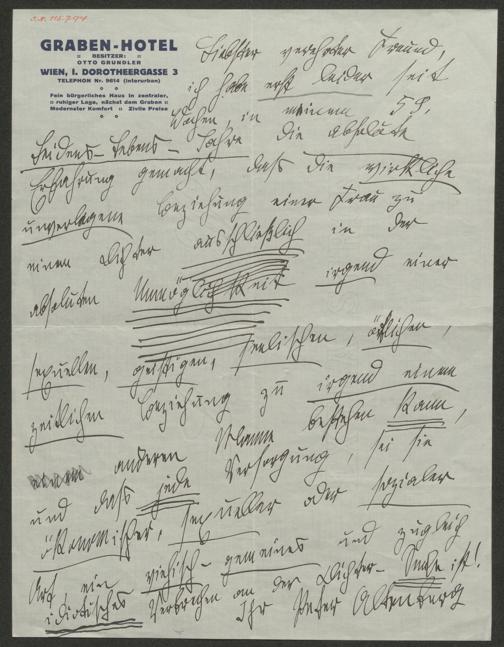 I.N. 115.794
GRABEN-HOTEL
BESITZER:
OTTO GRUNDLER
WIEN, I. DOROTHEERGASSE 3
TELEPHON Nr. 9614 (interurban)
Fein bürgerliches Haus in zentraler,
ruhiger Lage, nächst dem Graben
Modernster Komfort Zivile Preise
Liebster verehrter Freund,
ich habe erst leider seit
Wochen, in meinem 59,
Leidens-Lebens-Jahre die absolute
Erfahrung gemacht, daß die wirkliche
unverlogene Beziehung einer Frau zu
einem Dichter ausschließlich in der
absoluten Unmöglichkeit irgend einer
sexuellen, geistigen, seelischen, örtlichen,
zeitlichen Beziehung zu irgend einem
anderen Manne bestehen kann,
und daß jede Versorgung, sei sie
ökonomischer, sexueller oder sozialer
Art, ein viehisch-gemeines und zugleich
idiotisches Verbrechen an der Dichter-Seele ist!
Ihr Peter Altenberg